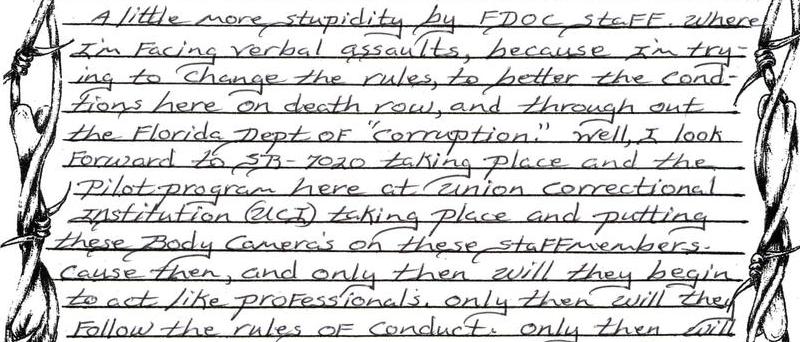 A little more stupidity by FDOC staff. where
I'm Facing verbal assaults, because I'm try-
ing to change the rules, to better the cond-
tions here on death row, and through out
the Florida Dept of "corruption." Well, I look
Forward to SB-7020 taking place and the
Pilot program here at Union correctional
Institution (UCI) taking place and putting
these Body Camera's on these staffmembers.
Cause then, and only then will they begin
to act like professionals. only then will they
Follow the rules of Conduct. only then will